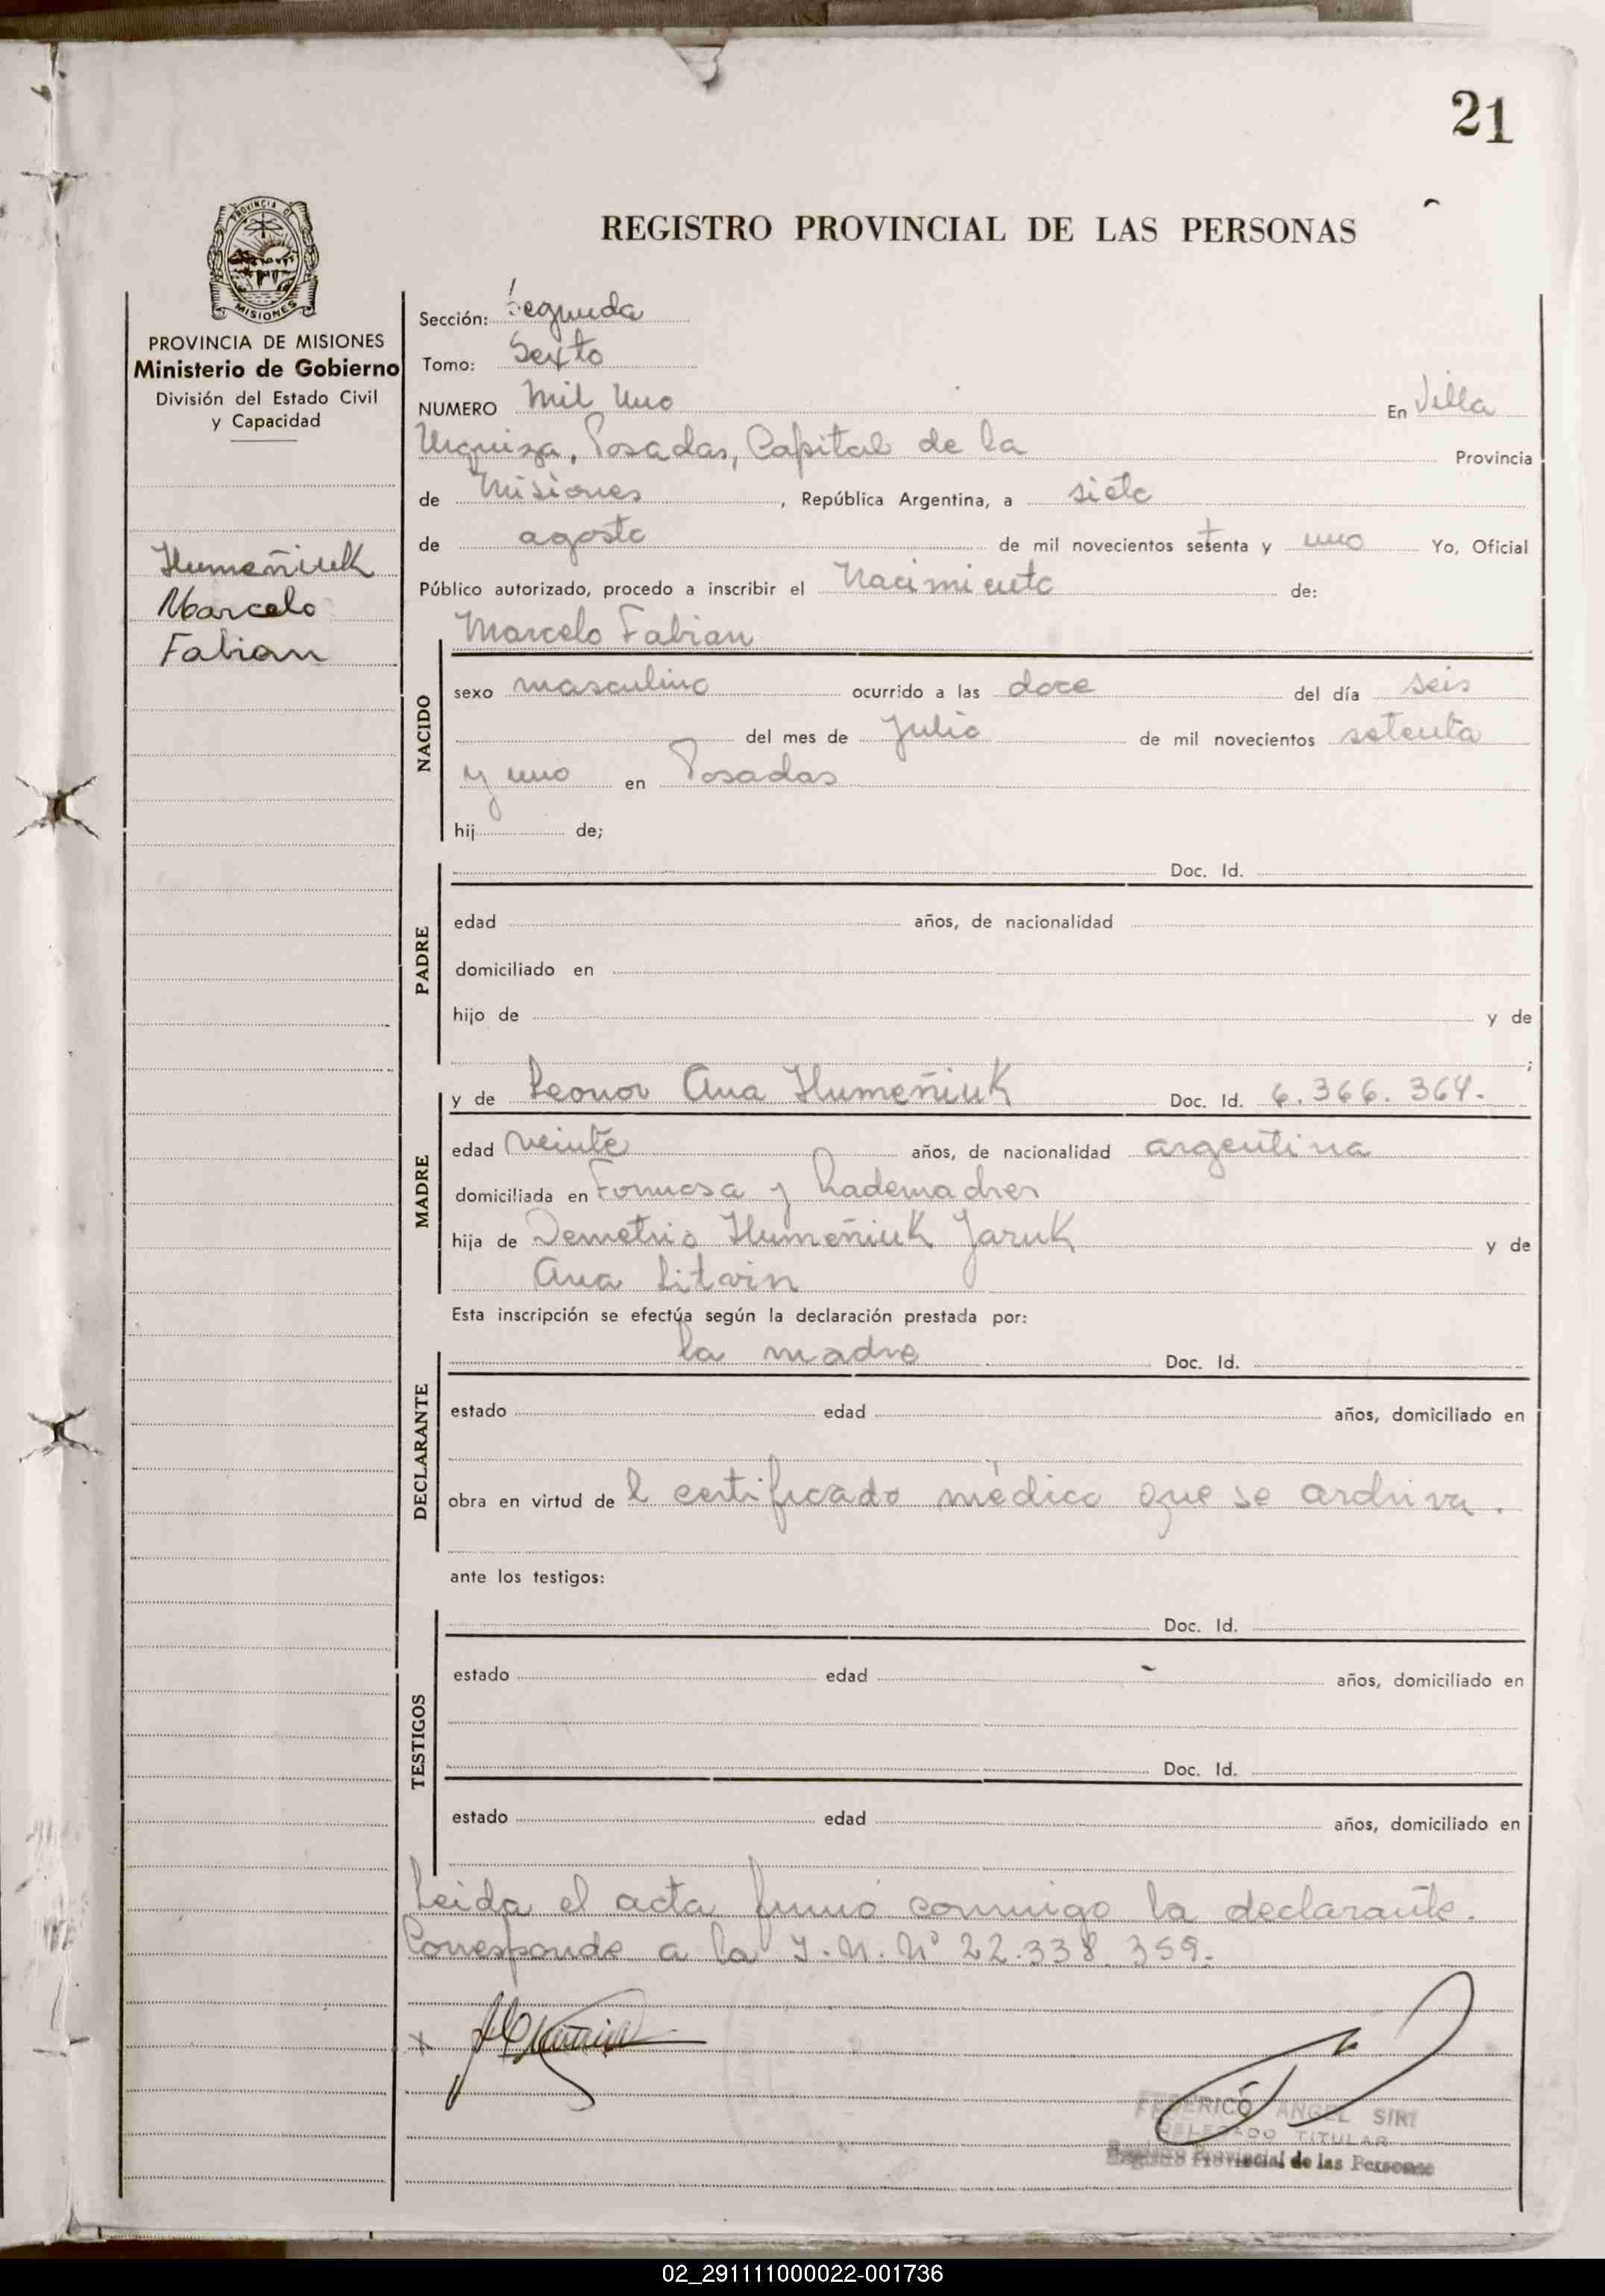 21
PROVINCIA DE
MISIONES
REGISTRO PROVINCIAL DE LAS PERSONAS
PROVINCIA DE MISIONES
Ministerio de Gobierno
División del Estado Civil
y Capacidad
Humeñiuk
Marcelo
Fabian
Sección: Segunda
Tomo: Sexto
NUMERO Mil Uno En Villa
Urquiza, Posadas, Capital de la Provincia
de Misiones, República Argentina, a siete
de agosto de mil novecientos setenta y uno Yo, Oficial
Público autorizado, procedo a inscribir el Nacimiento de:
Marcelo Fabian
NACIDO
sexo masculino ocurrido a las doce del día seis
del mes de Julio de mil novecientos setenta
y uno en Posadas
hij de;
PADRE
Doc. Id.
edad años, de nacionalidad
domiciliado en
hijo de y de
;
MADRE
y de Leonor Ana Humeñiuk Doc. Id. 6.366.364.-
edad veinte años, de nacionalidad argentina
domiciliada en Formosa y Rademacher
hija de Demetrio Humeñiuk Jaruk y de
Ana Litvin
Esta inscripción se efectúa según la declaración prestada por:
DECLARANTE
la madre Doc. Id.
estado edad años, domiciliado en
obra en virtud de l certificado médico que se archiva.
ante los testigos:
TESTIGOS
Doc. Id.
estado edad años, domiciliado en
Doc. Id.
estado edad años, domiciliado en
Leida el acta firmó conmigo la declarante.
Corresponde a la I.N. Nº 22.338.359.-
x
FEDERICO ANGEL SIRI
DELEGADO TITULAR
Registro Provincial de las Personas
02_291111000022-001736